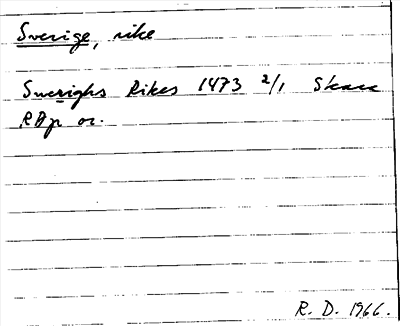 Sverige, rike
Swerighs Rikes 1473 2/1 Skara
RAp or.
R. D. 1966.